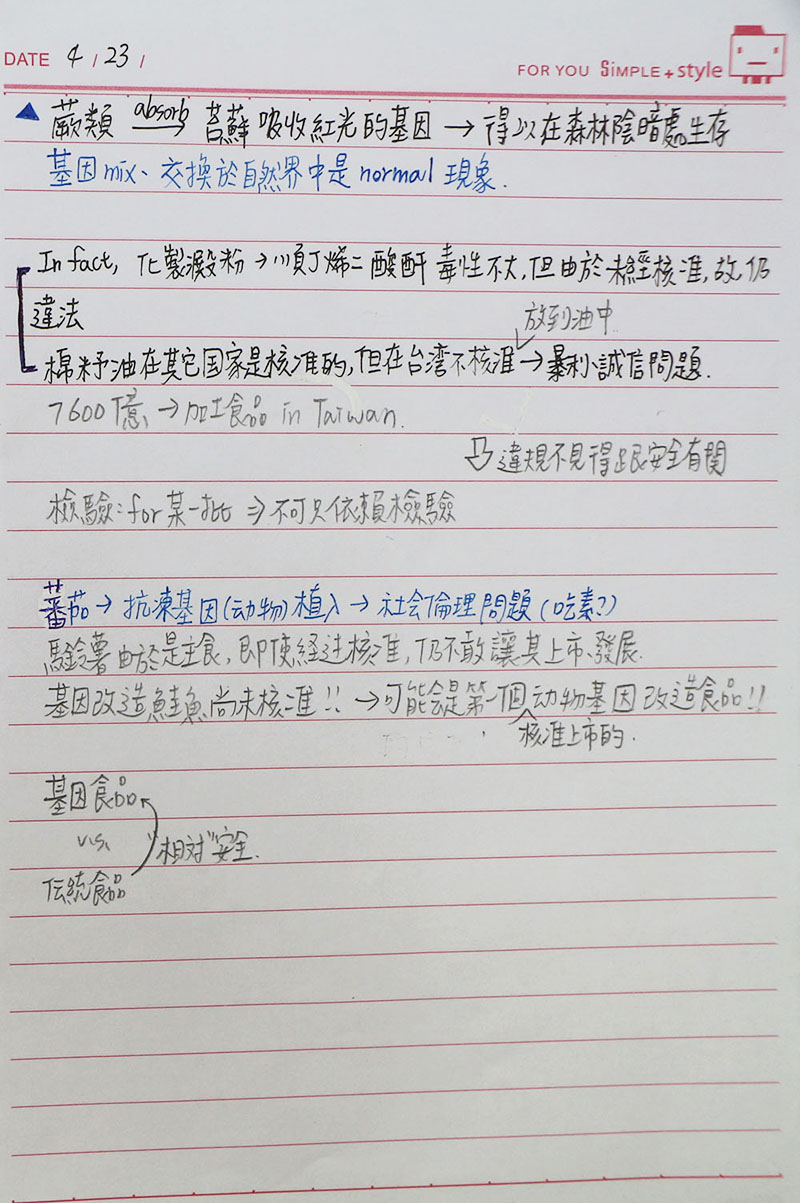 DATE 4 / 23 /
FOR YOU SiMPLE + style
▲ 蕨類 absorb → 苔蘚吸收紅光的基因 → 得以在森林陰暗處生存
基因mix、交換於自然界中是normal現象.
In fact, 化製澱粉→順丁烯二酸酐毒性不大,但由於未經核准,故仍
違法
放到油中
棉籽油在其它国家是核准的,但在台湾不核准→暴利、誠信問題.
7600億→加工食品 in Taiwan.
⇩ 違規不見得跟安全有関
檢驗:for某一批 ⇒ 不可只依賴檢驗
蕃茄→抗凍基因(动物)植入→社会倫理問題(吃素?)
馬鈴薯由於是主食,即使経过核准,仍不敢讓其上市、發展.
基因改造鮭魚尚未核准!! →可能会是第一個动物基因改造食品!!
核准上市的.
基因食品
v.s.
"相对"安全.
伝統食品